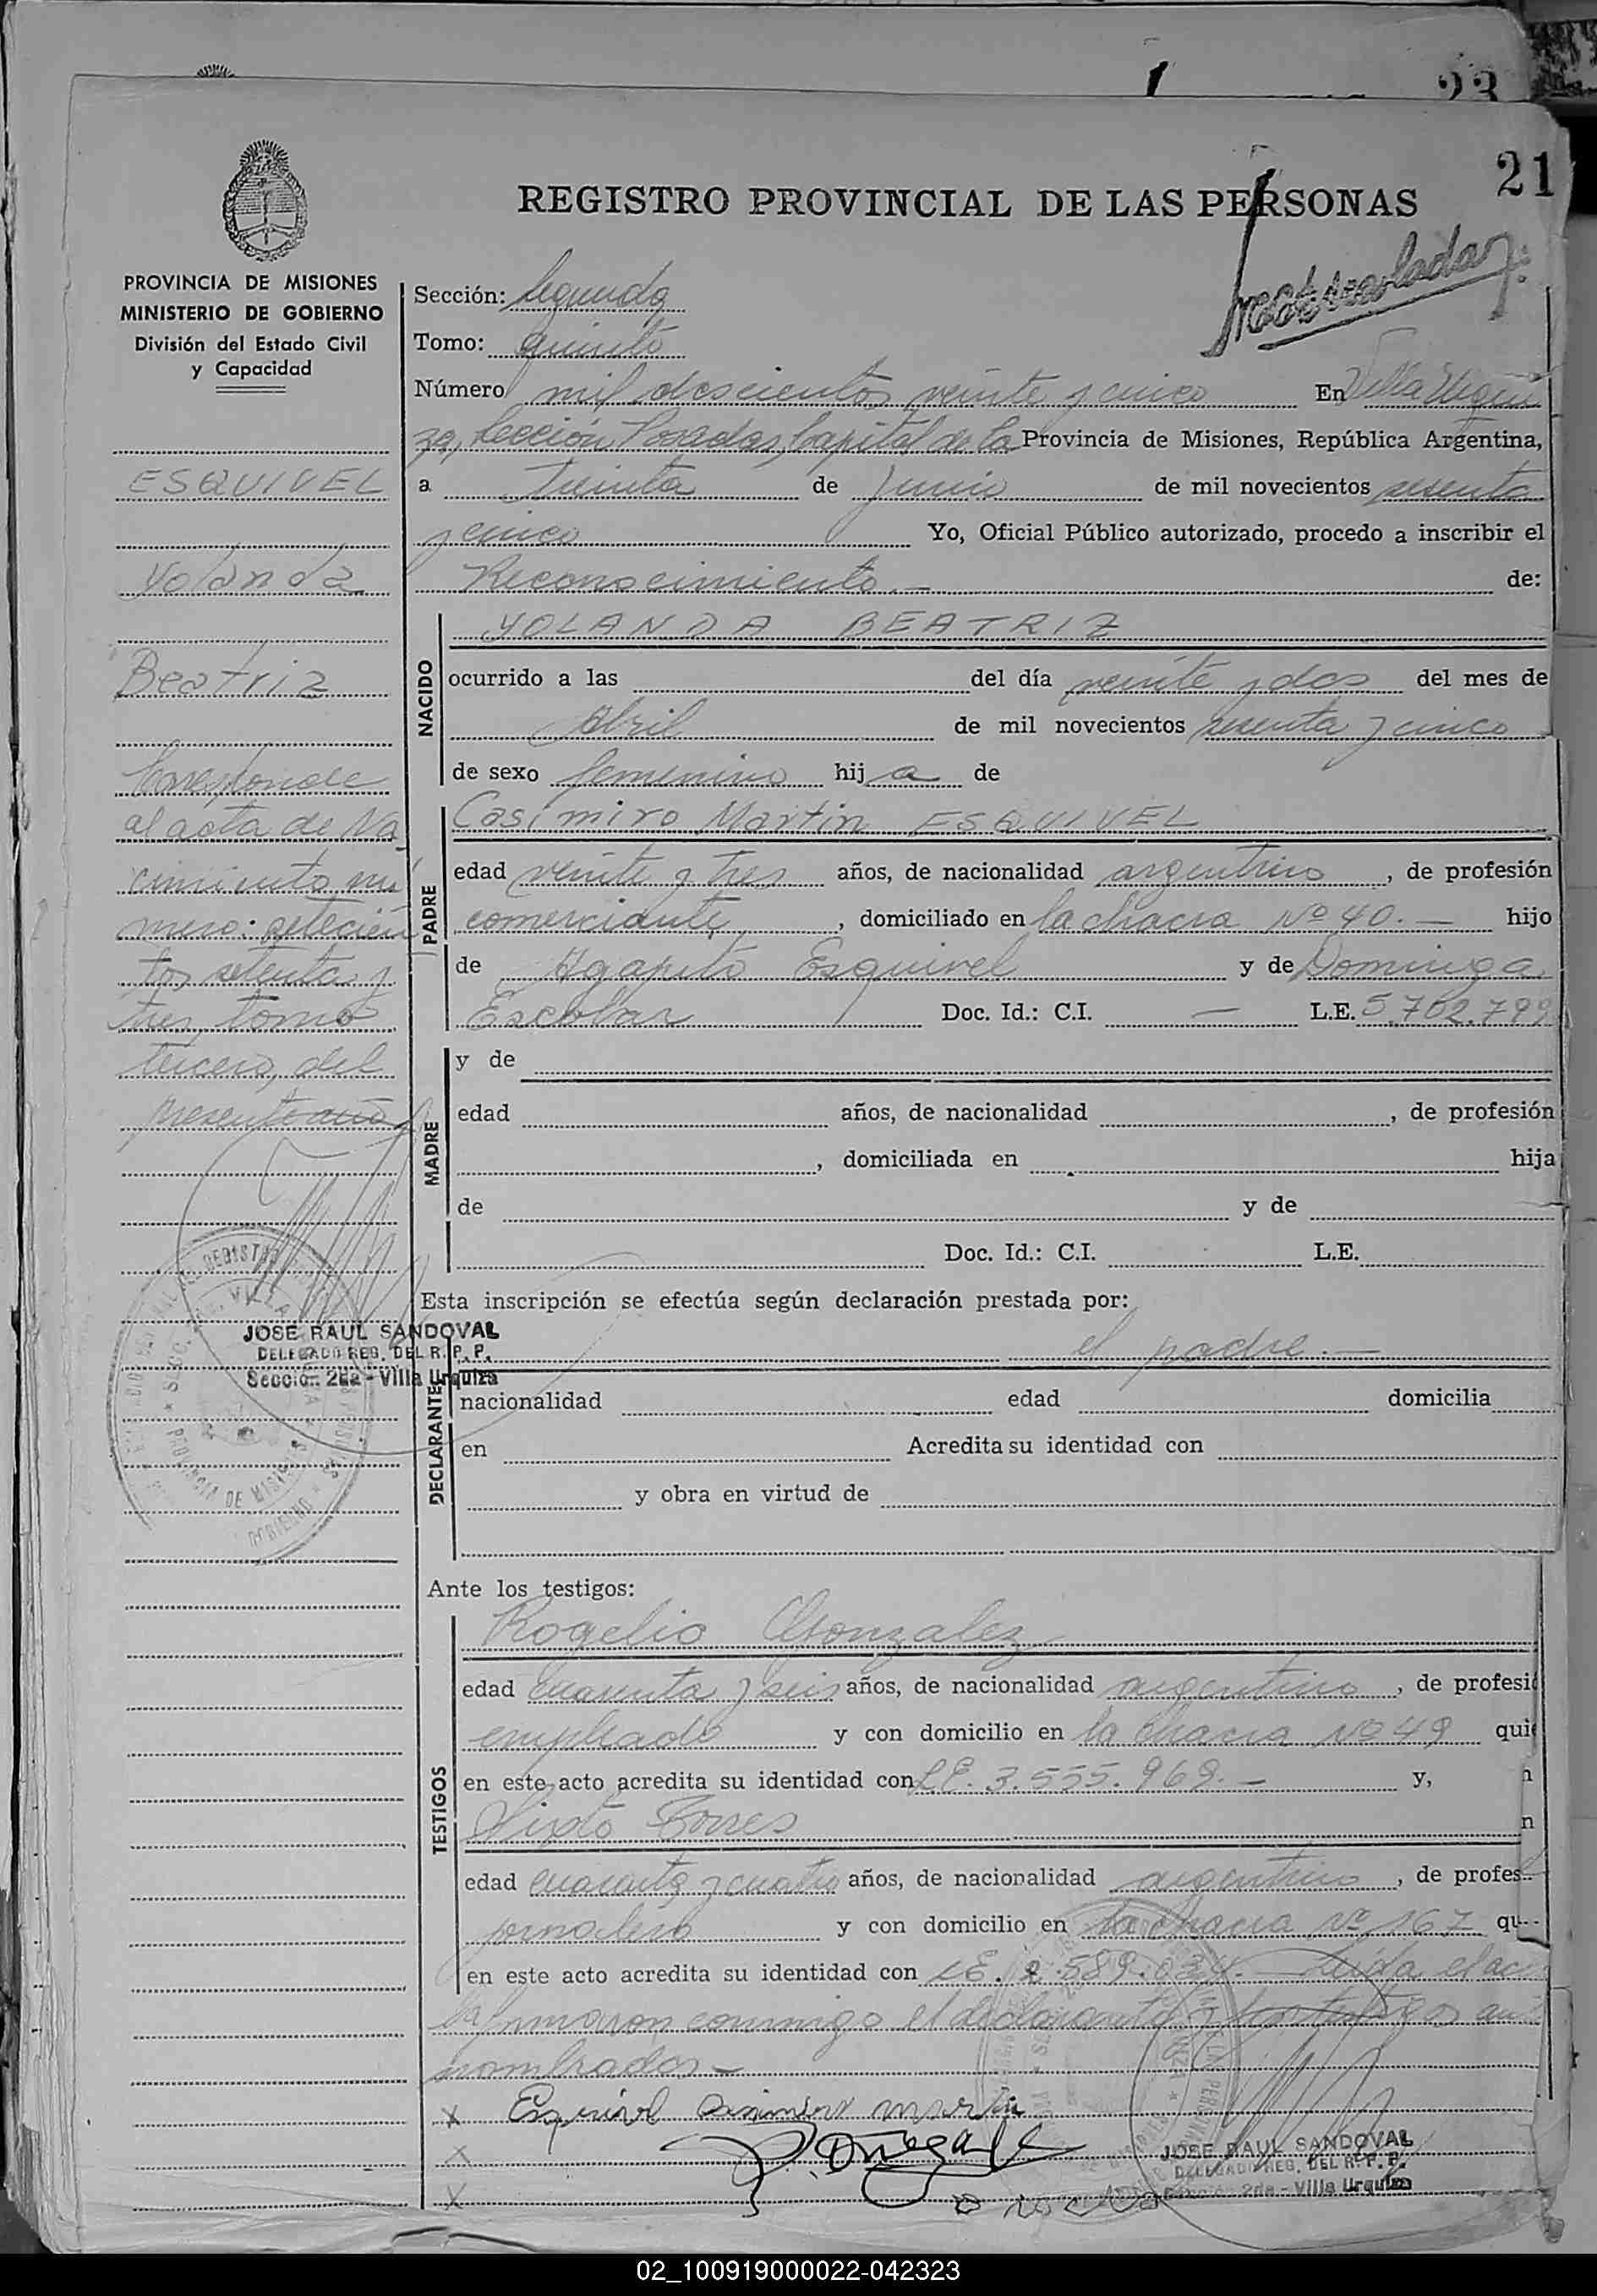 23
21
REGISTRO PROVINCIAL DE LAS PERSONAS
PROVINCIA DE MISIONES
MINISTERIO DE GOBIERNO
División del Estado Civil
y Capacidad
ESQUIVEL
Yolanda
Beatriz
Corresponde
al acta de Na
cimiento nu
mero: setecien
tos setenta y
tres, tomo
tercero, del
presente año
JOSE RAUL SANDOVAL
DELEGADO REG. DEL R. P. P.
Sección 2da - Villa Urquiza
Sección: Segunda
Tomo: quinto
Número mil doscientos veinte y cinco En Villa Urqui
za, Sección Posadas, Capital de la Provincia de Misiones, República Argentina,
a treinta de Junio de mil novecientos sesenta
y cinco Yo, Oficial Público autorizado, procedo a inscribir el
Reconocimiento.- de:
NACIDO
YOLANDA BEATRIZ
ocurrido a las del día veinte y dos del mes de
Abril de mil novecientos sesenta y cinco
de sexo femenino hij a de
PADRE
Casimiro Martin ESQUIVEL
edad veinte y tres años, de nacionalidad argentino, de profesión
comerciante, domiciliado en la chacra Nº 40.- hijo
de Agapito Esquivel y de Dominga
Escobar Doc. Id.: C.I. — L.E. 5.702.799
MADRE
y de
edad años, de nacionalidad , de profesión
, domiciliada en hija
de y de
Doc. Id.: C.I. L.E.
Esta inscripción se efectúa según declaración prestada por:
el padre.-
DECLARANTE
nacionalidad edad domicilia
en Acredita su identidad con
y obra en virtud de
Ante los testigos:
TESTIGOS
Rogelio Gonzalez
edad cuarenta y seis años, de nacionalidad argentino, de profesi
empleado y con domicilio en la chacra Nº 49 qui
en este acto acredita su identidad con L.E. 3.555.969.- y,
Sixto Torres
edad cuarenta y cuatro años, de nacionalidad argentino, de profes
jornalero y con domicilio en la chacra Nº 167 qu
en este acto acredita su identidad con L.E. 2.589.034.- Leída el ac
ta firmaron conmigo el declarante y los testigos
nombrados-
x Esquivel Casimiro martin
x
x
JOSE RAUL SANDOVAL
DELEGADO REG. DEL R. P. P.
Sección 2da - Villa Urquiza
02_100919000022-042323